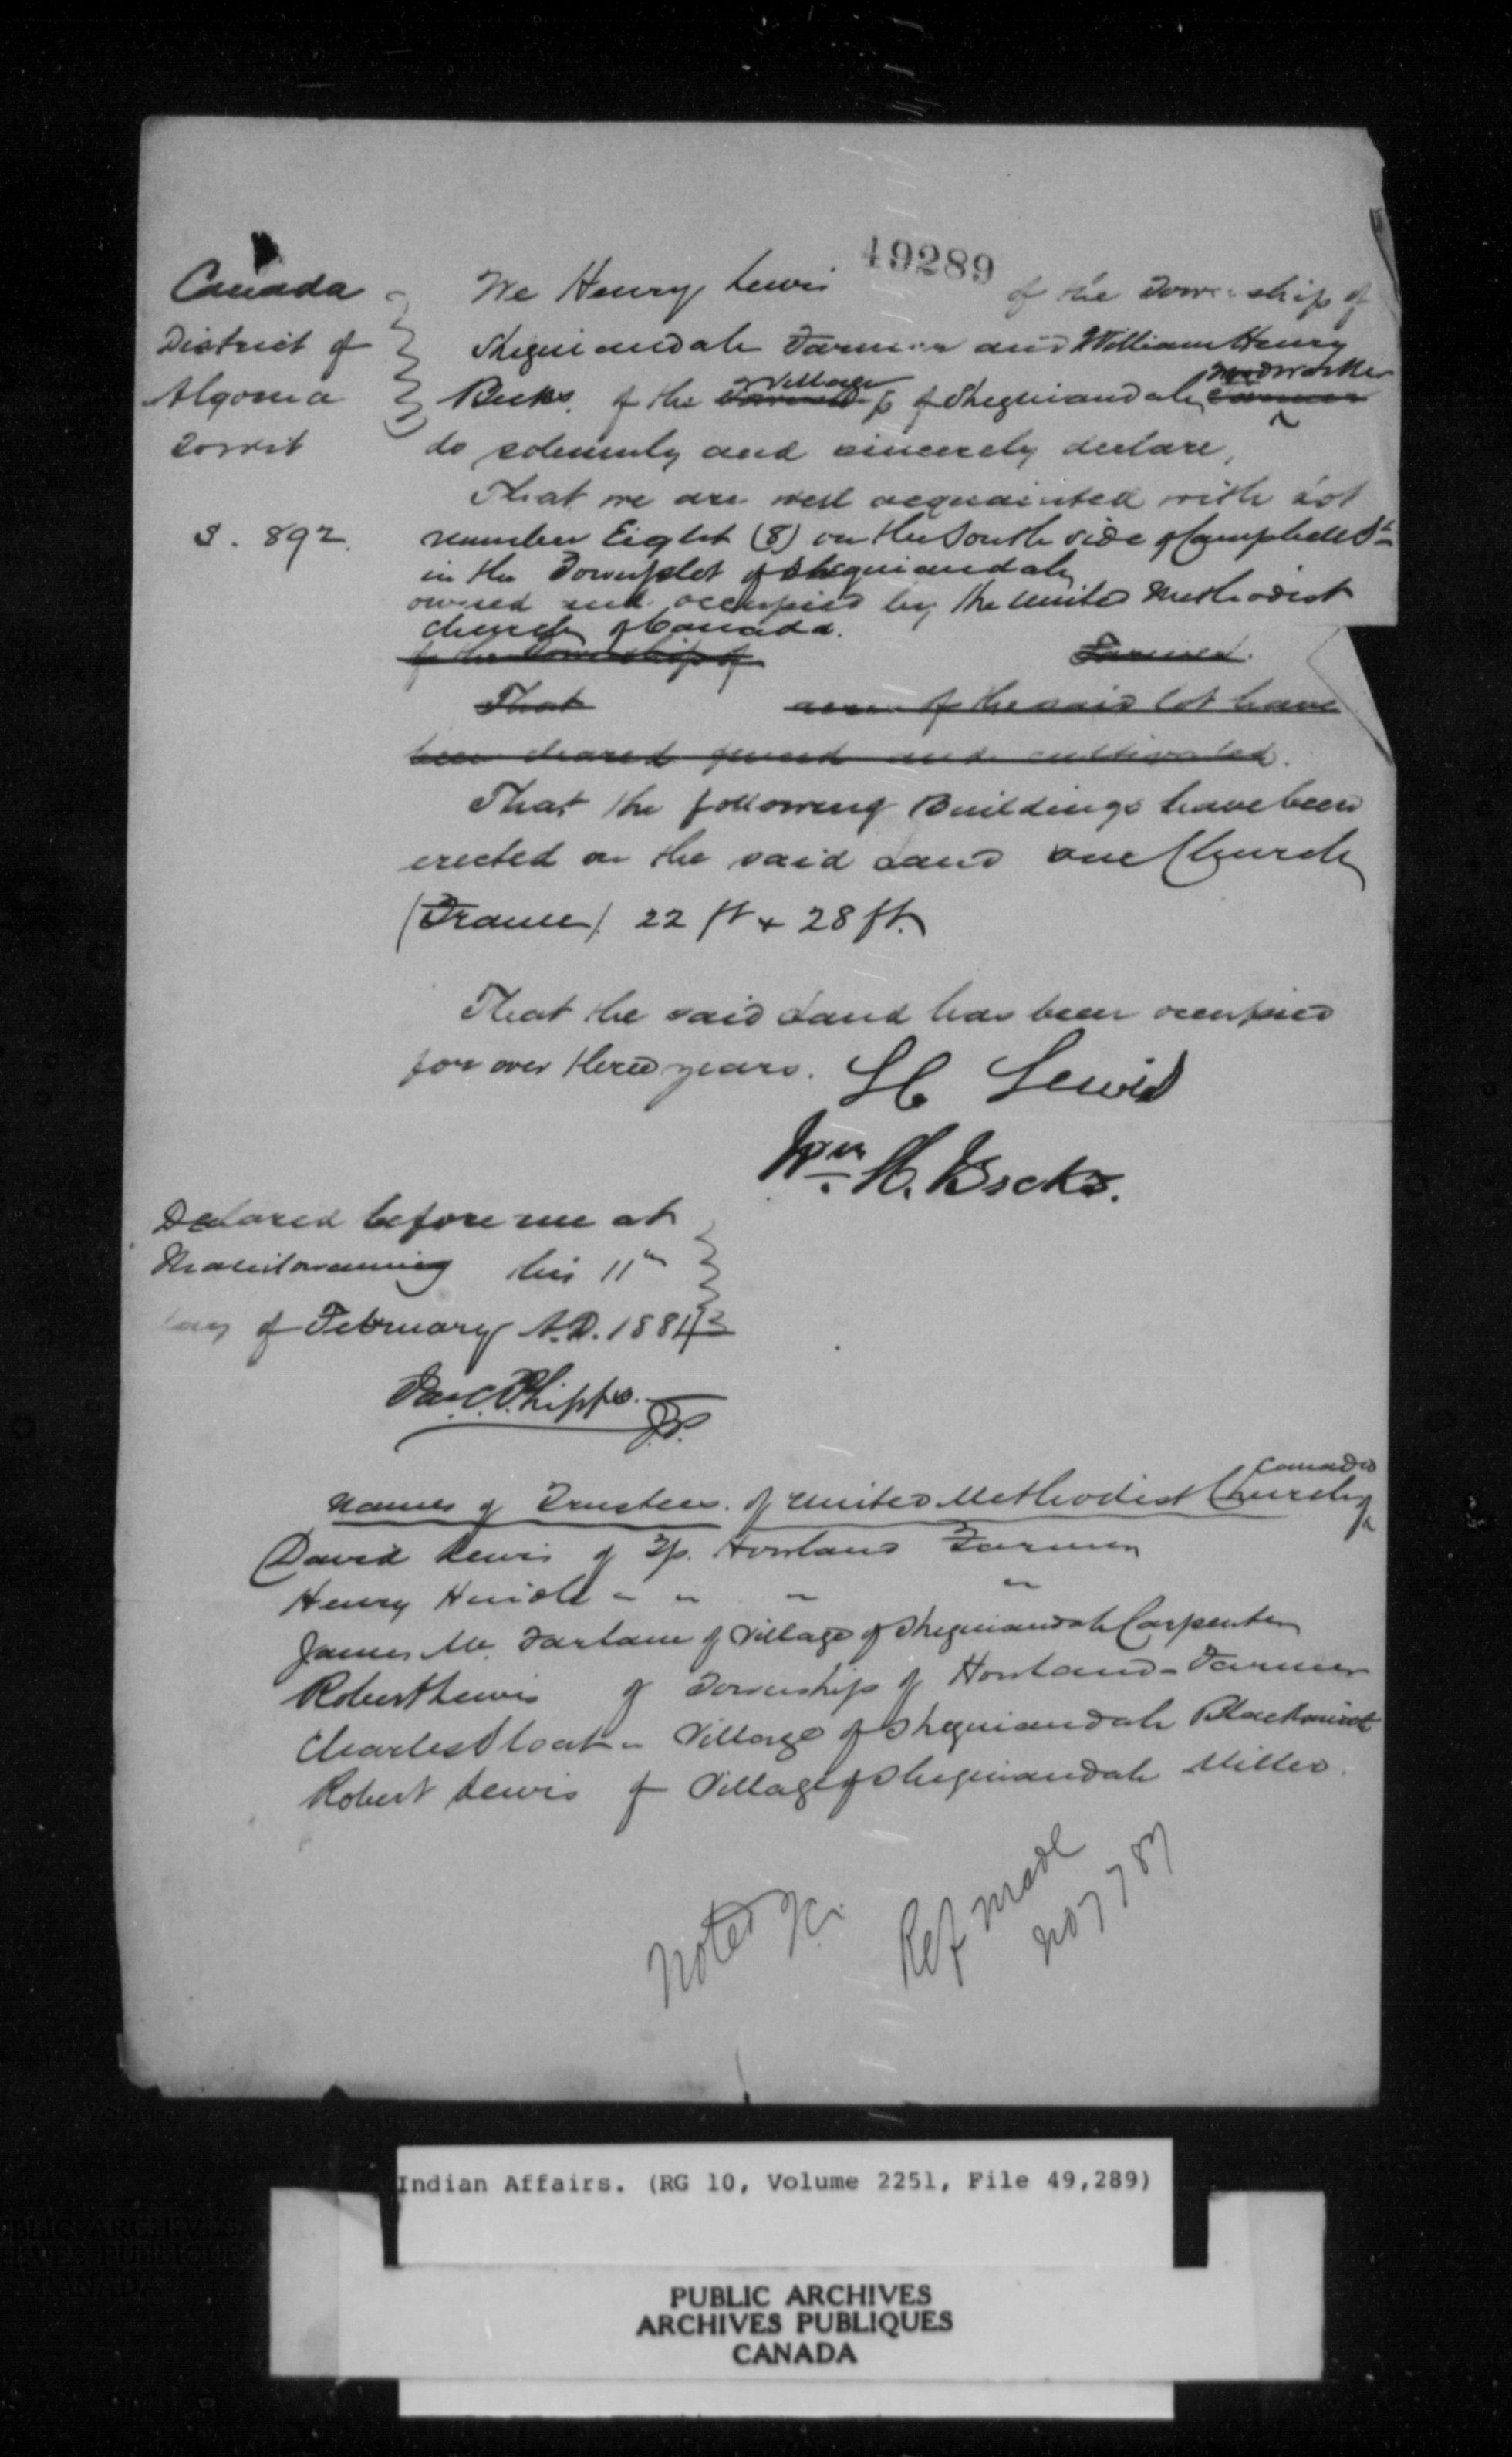 49289
Canada
District of
Algoma
To wit
S. 892.
We Henry Lewis of the Township of
Sheguiandah Farmer and William Henry
Becks. of the Village of Sheguiandah Woodworker
do solemnly and sincerely declare,
That we are well acquainted with Lot
number Eight (8) on the South side of Campbell St
in the Townplot of Sheguiandah
owned and occupied by the United Methodist
church of Canada.
of the Township of Farmer.
That acres of the said lot have
been cleared fenced and cultivated.
That the following Buildings have been
erected on the said Land one Church
(Frame) 22 ft x 28 ft.
That the said Land has been occupied
for over three years.
H Lewis
Wm. H. Becks.
Declared before me at
Manitowaning this 11th
day of February A.D. 1884
Jas. C. Phipps.
J.P.
Names of Trustees of United Methodist Church of Canada
David Lewis of Tp. Howland Farmer
Henry " " " "
James Mc Farlane of Village of Sheguiandah Carpenter
Robert Lewis of Township of Howland - Farmer
Charles Sloat - Village of Sheguiandah Blacksmith
Robert Lewis of Village of Sheguiandah Miller.
Noted
Ref made
Indian Affairs. (RG 10, Volume 2251, File 49,289)
PUBLIC ARCHIVES
ARCHIVES PUBLIQUES
CANADA